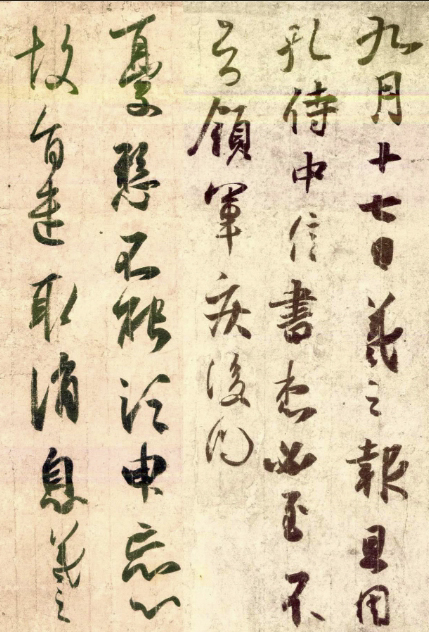 九月十七日羲之報且因
孔侍中信書想必至不
知領軍疾後問
憂懸不能須臾忘心
故旨遣取消息羲之